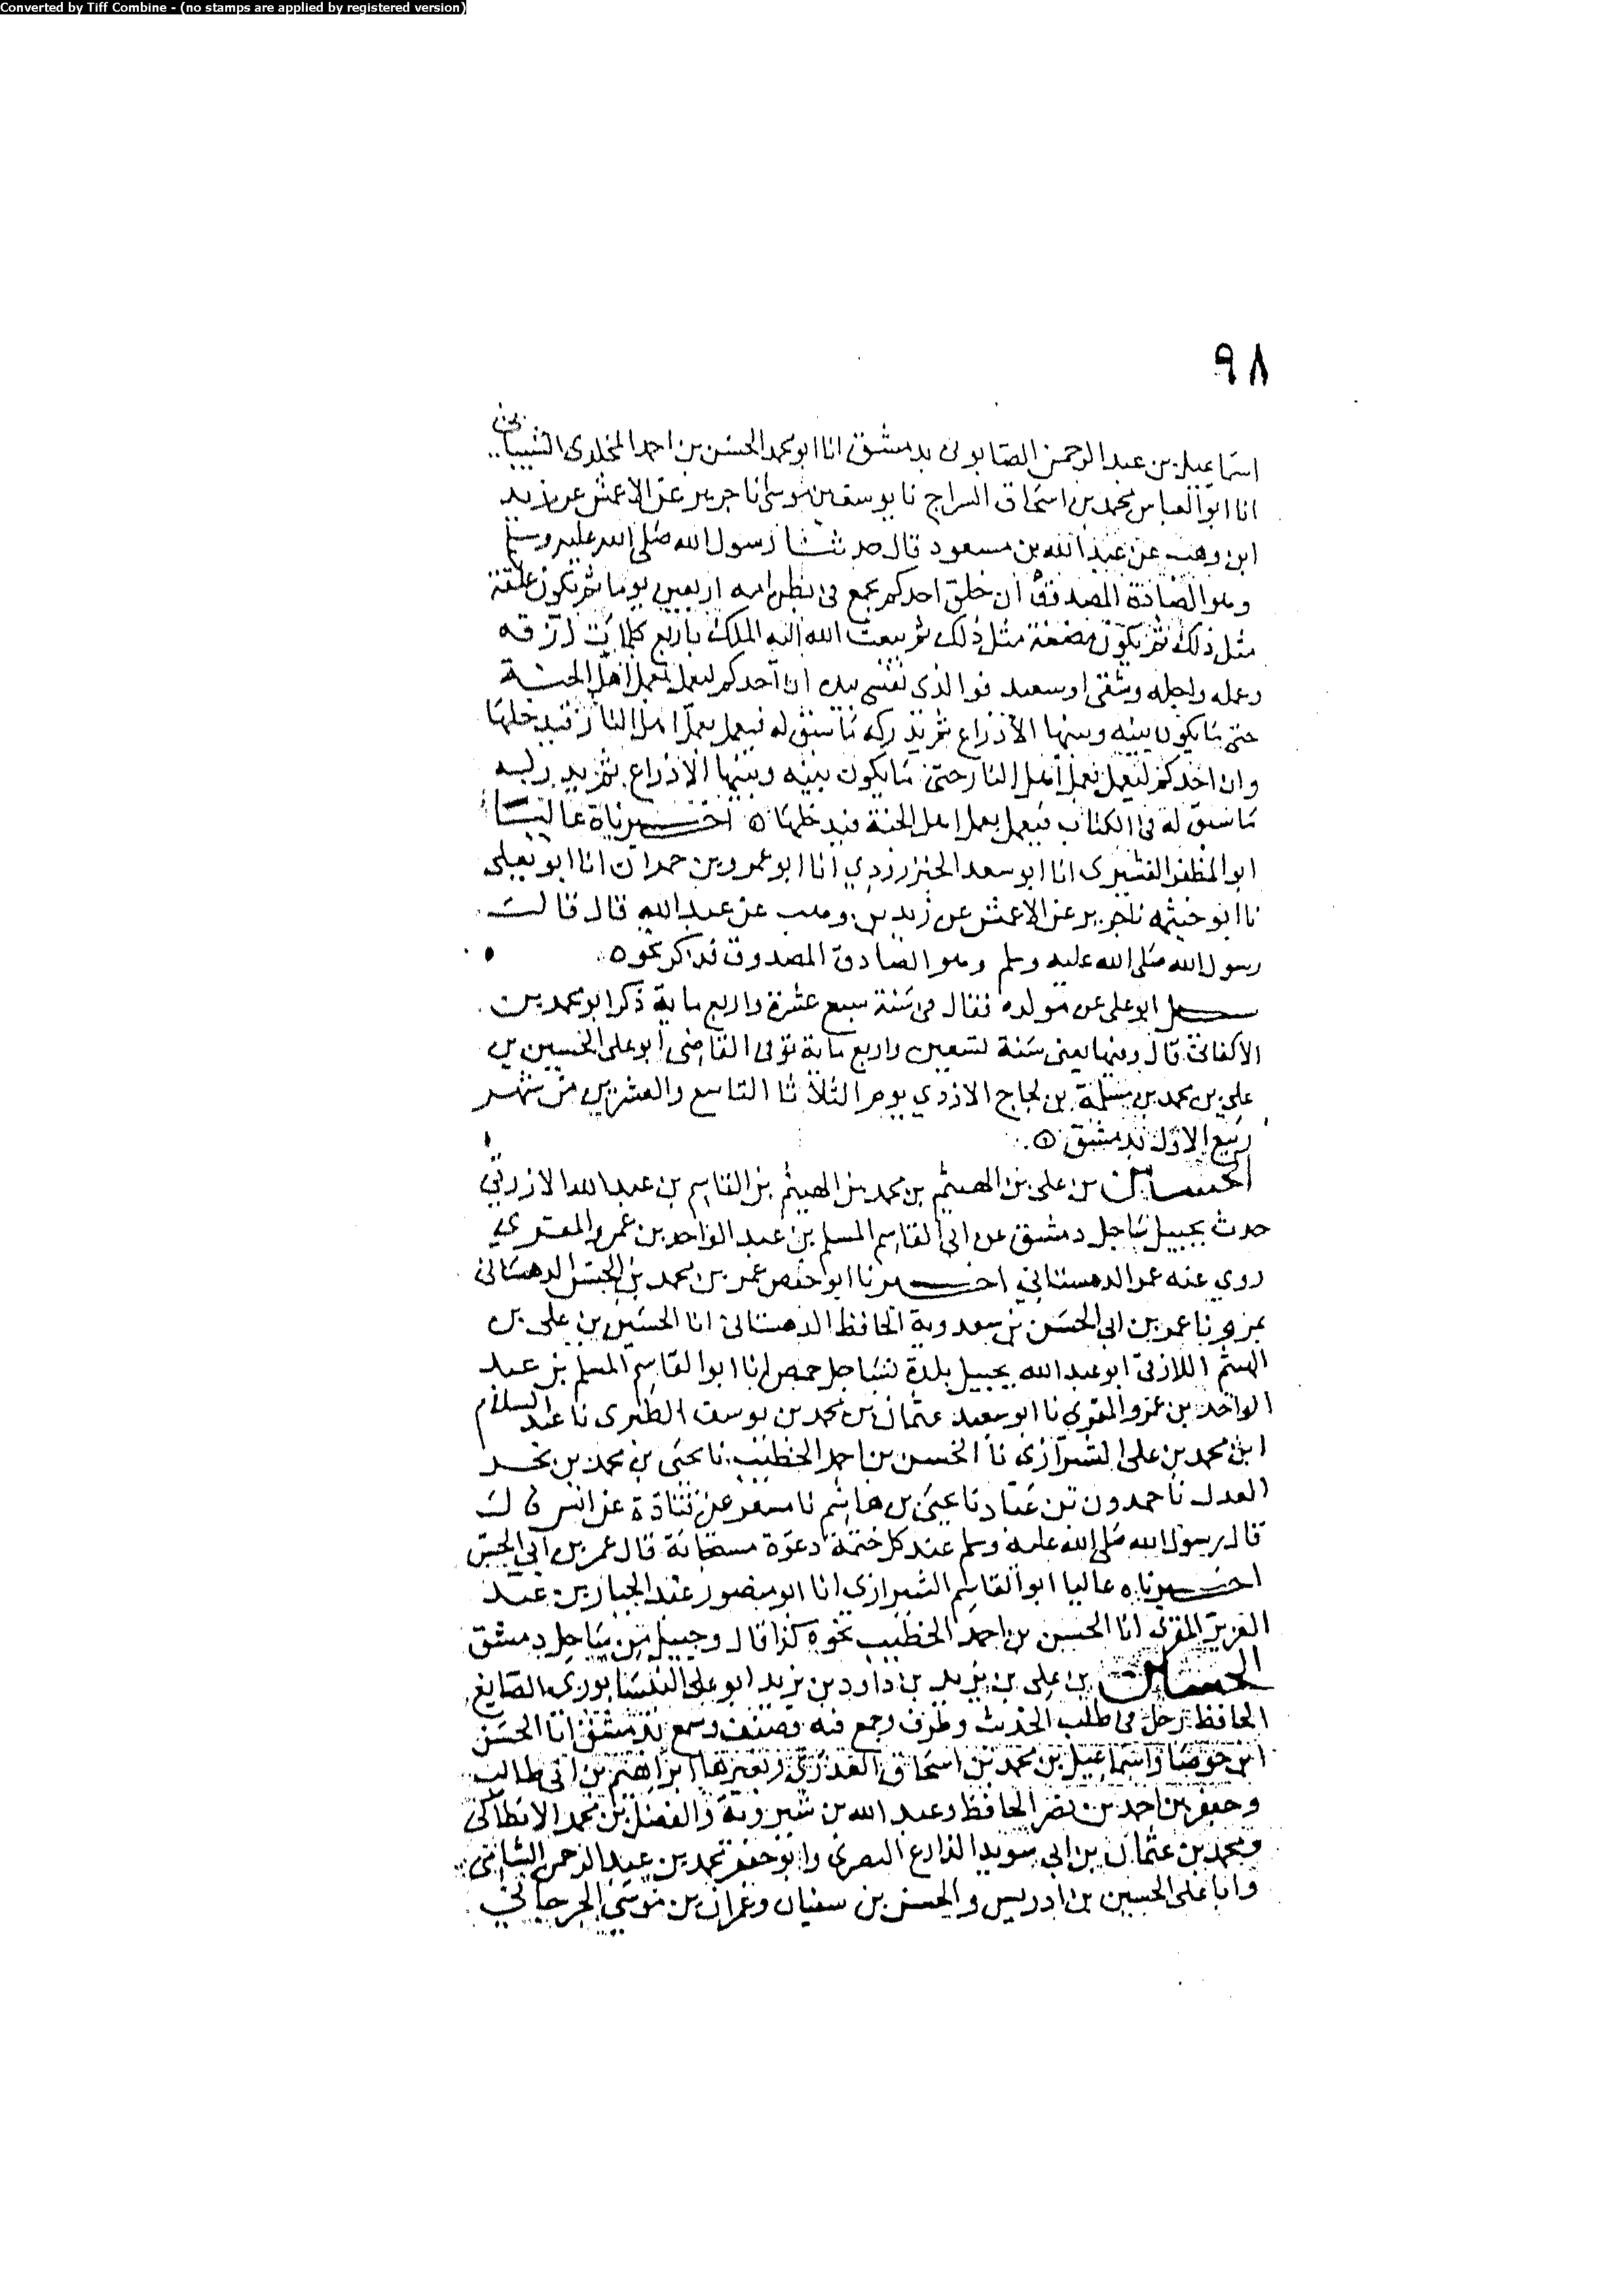 Converted by Tiff Combine - (no stamps are applied by registered version)
٩٨
اسماعيل بن عبد الرحمن الصابوني بدمشق انا ابو محمد الحسن بن احمد المخلدي الشيباني
انا ابو العباس محمد بن اسحاق السراج نا يوسف بن موسى نا جرير عن الاعمش عن زيد
ابن وهب عن عبد الله بن مسعود قال حدثنا رسول الله صلى الله عليه وسلم
وهو الصادق المصدوق ان خلق احدكم يجمع في بطن امه اربعين يوما ثم تكون علقة
مثل ذلك ثم يكون مضغة مثل ذلك ثم يبعث الله اليه الملك باربع كلمات رزقه
وعمله واجله وشقي او سعيد فوالذي نفسي بيده ان احدكم ليعمل بعمل اهل الجنة
حتى ما يكون بينه وبينها الا ذراع ثم يدركه ما سبق له فيعمل بعمل اهل النار فيدخلها
وان احدكم ليعمل بعمل اهل النار حتى ما يكون بينه وبينها الا ذراع ثم يدركه
ما سبق له في الكتاب فيعمل بعمل اهل الجنة فيدخلها ٥ اخبرناه عاليا
ابو المظفر القشيري انا ابو سعد الجنزرودي انا ابو عمرو بن حمدان انا ابو يعلى
نا ابو خيثمه نا جرير عن الاعمش عن زيد بن وهب عن عبد الله قال قال
رسول الله صلى الله عليه وسلم وهو الصادق المصدوق فذكر نحوه
سئل ابو علي عن مولده فقال في سنة سبع عشرة واربع ماية ذكر ابو محمد بن
الاكفاني قال وفيها يعني سنة تسعين واربع ماية توفي القاضي ابو علي الحسين بن
علي بن محمد بن مسلمة بن لجاج الازدي يوم الثلاثا التاسع والعشرين من شهر
ربيع الاول بدمشق ٥
الحسين بن علي بن الهيثم بن محمد بن الهيثم بن القاسم بن عبد الله اللاذقي
حدث بجبيل ساحل دمشق عن ابي القاسم المسلم بن عبد الواحد بن عمرو المقري
روي عنه عمر الدهستاني اخبرنا ابو حفص عمر بن محمد بن الحسن الدهستاني
بمرو نا عمر بن ابي الحسن بن سعدوية الحافظ الدهستاني انا الحسين بن علي بن
الهيثم اللاذقي ابو عبد الله بجبيل بلدة بساحل حمص انا ابو القاسم المسلم بن عبد
الواحد بن عمرو المقري نا ابو سعيد عثمان بن محمد بن يوسف الطبري نا عبد السلام
ابن محمد بن علي الشيرازي نا الحسن بن احمد الخطيب نا يحيى بن محمد بن محمد
العدل نا حمدون بن عباد نا يحيى بن هاشم نا مسعر عن قتادة عن انس قال
قال رسول الله صلى الله عليه وسلم عند كل ختمة دعوة مستجابة قال عمر بن ابي الحسن
اخبرناه عاليا ابو القاسم الشيرازي انا ابو منصور عبد الجبار بن عبد
العزيز المقري انا الحسن بن احمد الخطيب نحوه كذا قال وجبيل من ساحل دمشق
الحسين بن علي بن يزيد بن داود بن يزيد ابو علي النيسابوري الصايغ
الحافظ رحل في طلب الحديث وطوف وجمع فيه وصنف وسمع بدمشق انا الحسن
ابن جوصا واسماعيل بن محمد بن اسحاق العذري وبغيرها ابراهيم بن ابي طالب
وجعفر بن احمد بن نصر الحافظ وعبد الله بن شيروية والفضل بن محمد الانطاكي
ومحمد بن عثمان بن ابي سويد الذارع البصري وابو جعفر محمد بن عبد الرحمن الشامي
وابا علي الحسين بن ادريس والحسن بن سفيان وعمران بن موسى الجرجاني